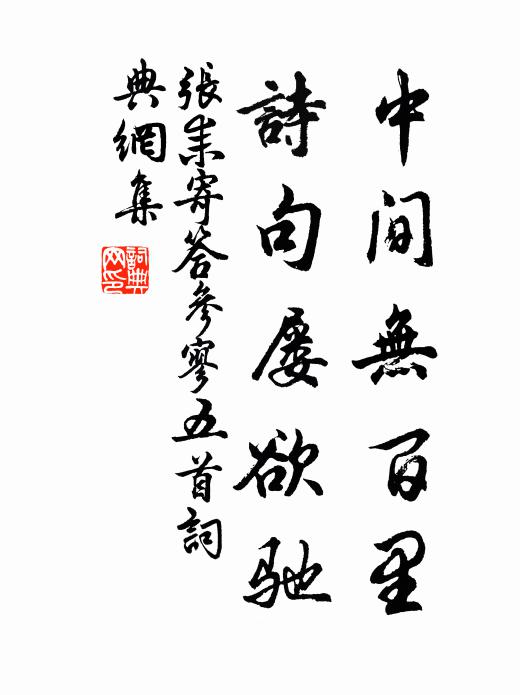 中间無百里
詩句屡欲驰
張耒寄答參寥五首詞
典網集
詞典
网印